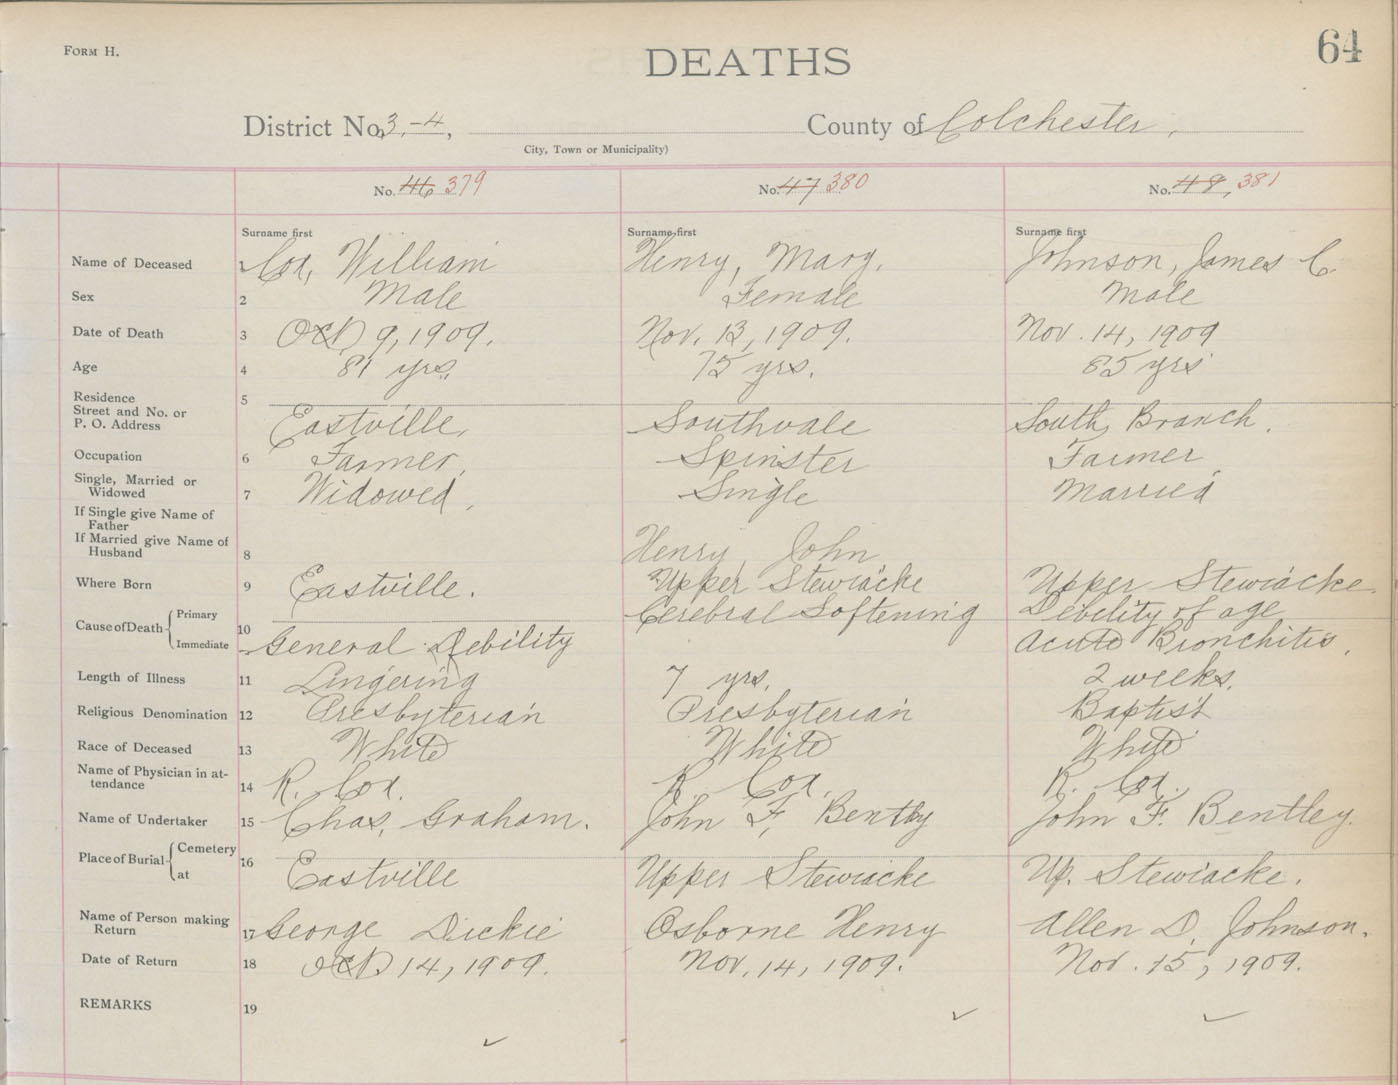 FORM H.
64
DEATHS
District No. 3,-4, County of Colchester,
City, Town or Municipality)
No. 46 379 No. 47 380 No. 48, 381
Surname first Surname first Surname first
Name of Deceased 1 Cox, William Henry, Mary. Johnson, James C.
Sex 2 Male Female Male
Date of Death 3 Oct 9, 1909. Nov. 13, 1909. Nov. 14, 1909
Age 4 81 yrs. 75 yrs. 85 yrs
Residence 5
Street and No. or
P. O. Address Eastville, Southvale South Branch.
Occupation 6 Farmer, Spinster Farmer,
Single, Married or
Widowed 7 Widowed, Single Married
If Single give Name of
Father
If Married give Name of
Husband 8 Henry, John
Where Born 9 Eastville. Upper Stewiacke Upper Stewiacke
Cause of Death Primary 10 Cerebral Softening Debility of age
Immediate General Debility Acute Bronchitis,
Length of Illness 11 Lingering 7 yrs. 2 weeks.
Religious Denomination 12 Presbyterian Presbyterian Baptist
Race of Deceased 13 White White White
Name of Physician in at-
tendance 14 R. Cox. R. Cox. R. Cox.
Name of Undertaker 15 Chas. Graham. John F. Bentley John F. Bentley.
Place of Burial Cemetery 16
at Eastville Upper Stewiacke Up. Stewiacke.
Name of Person making
Return 17 George Dickie Osborne Henry Allen D. Johnson.
Date of Return 18 Oct 14, 1909. Nov. 14, 1909. Nov. 15, 1909.
REMARKS 19